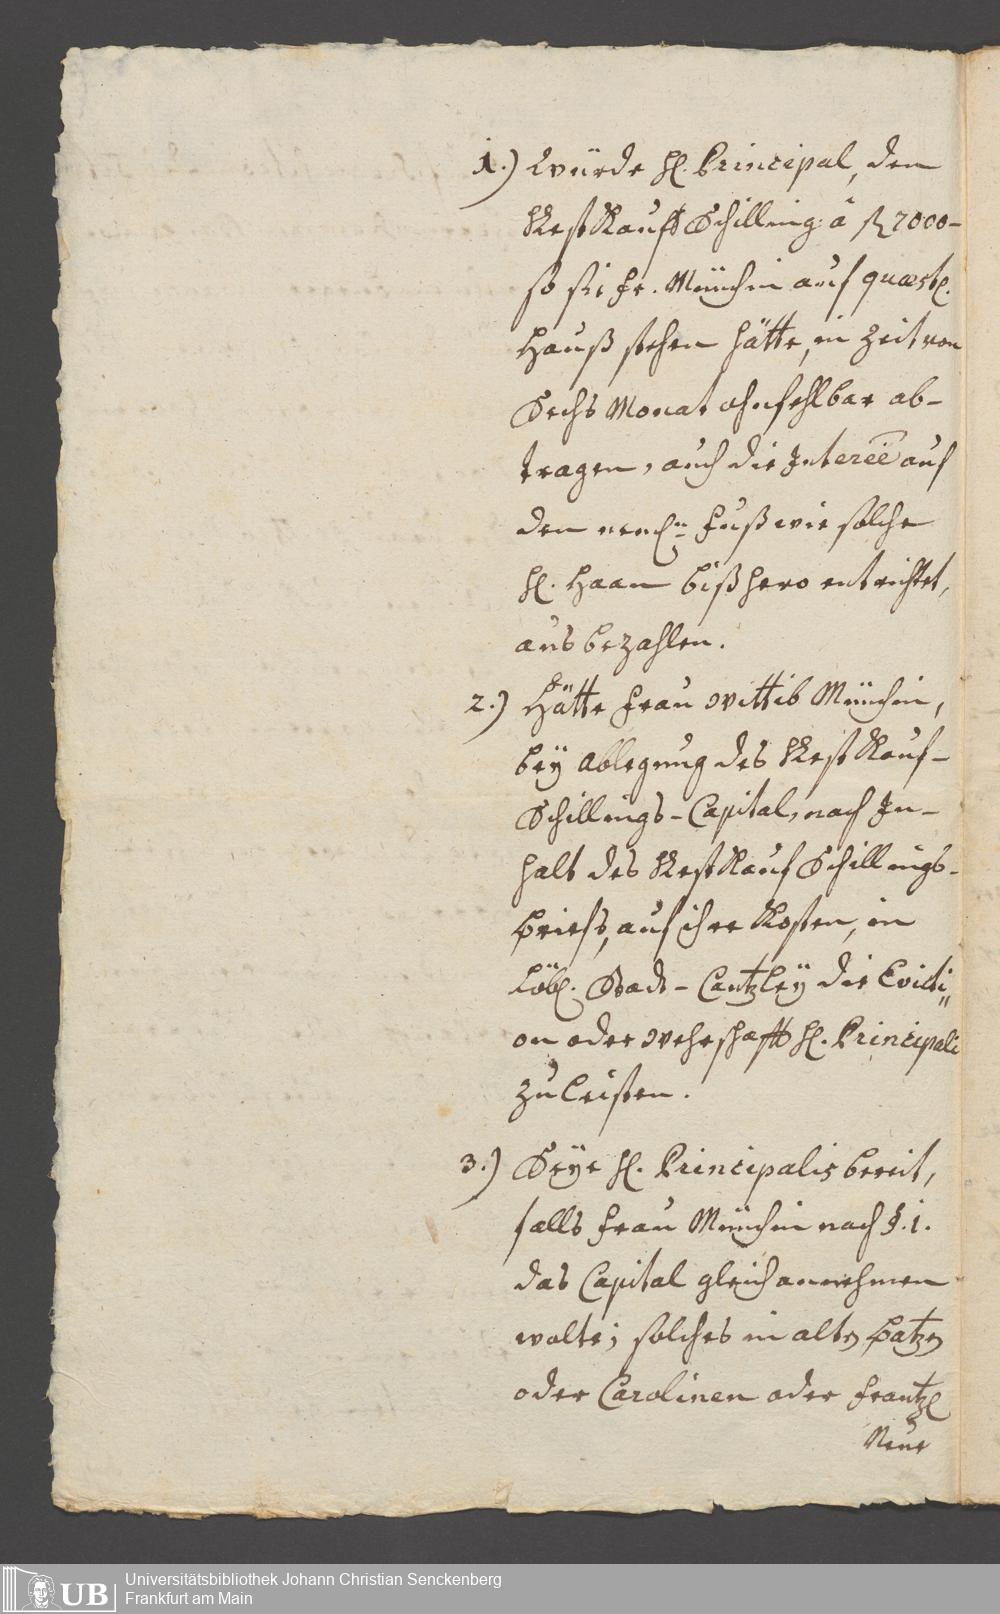 1.) Würde H. Principal, den
Rest Kauff Schilling à fl 7000-
so sie Fr. Münchin auf quæst.
Hauß stehen hätte, in Zeit von
Sechs Monat ohnfehlbar ab-
tragen, auch die Interee auf
den neml. Fuß wie solche
H. Haan bißhero entrichtet,
ausbezahlen.
2.) Hätte Frau Wittib Münchin,
bey Ablegung des Rest Kauf-
Schillings-Capital, nach In-
halt des Rest Kauf Schillings-
Briefs, auf ihre Kosten, in
Löbl. Stadt-Cantzley die Evicti
on oder Wehrschafft H. Principali
zu leisten.
3.) Seye H. Principalis bereit,
falls Frau Münchin nach §. 1.
das Capital gleich annehmen
wolte; solches in alten Batzen
oder Carolinen oder Frantzl
Neue
UB
Universitätsbibliothek Johann Christian Senckenberg
Frankfurt am Main